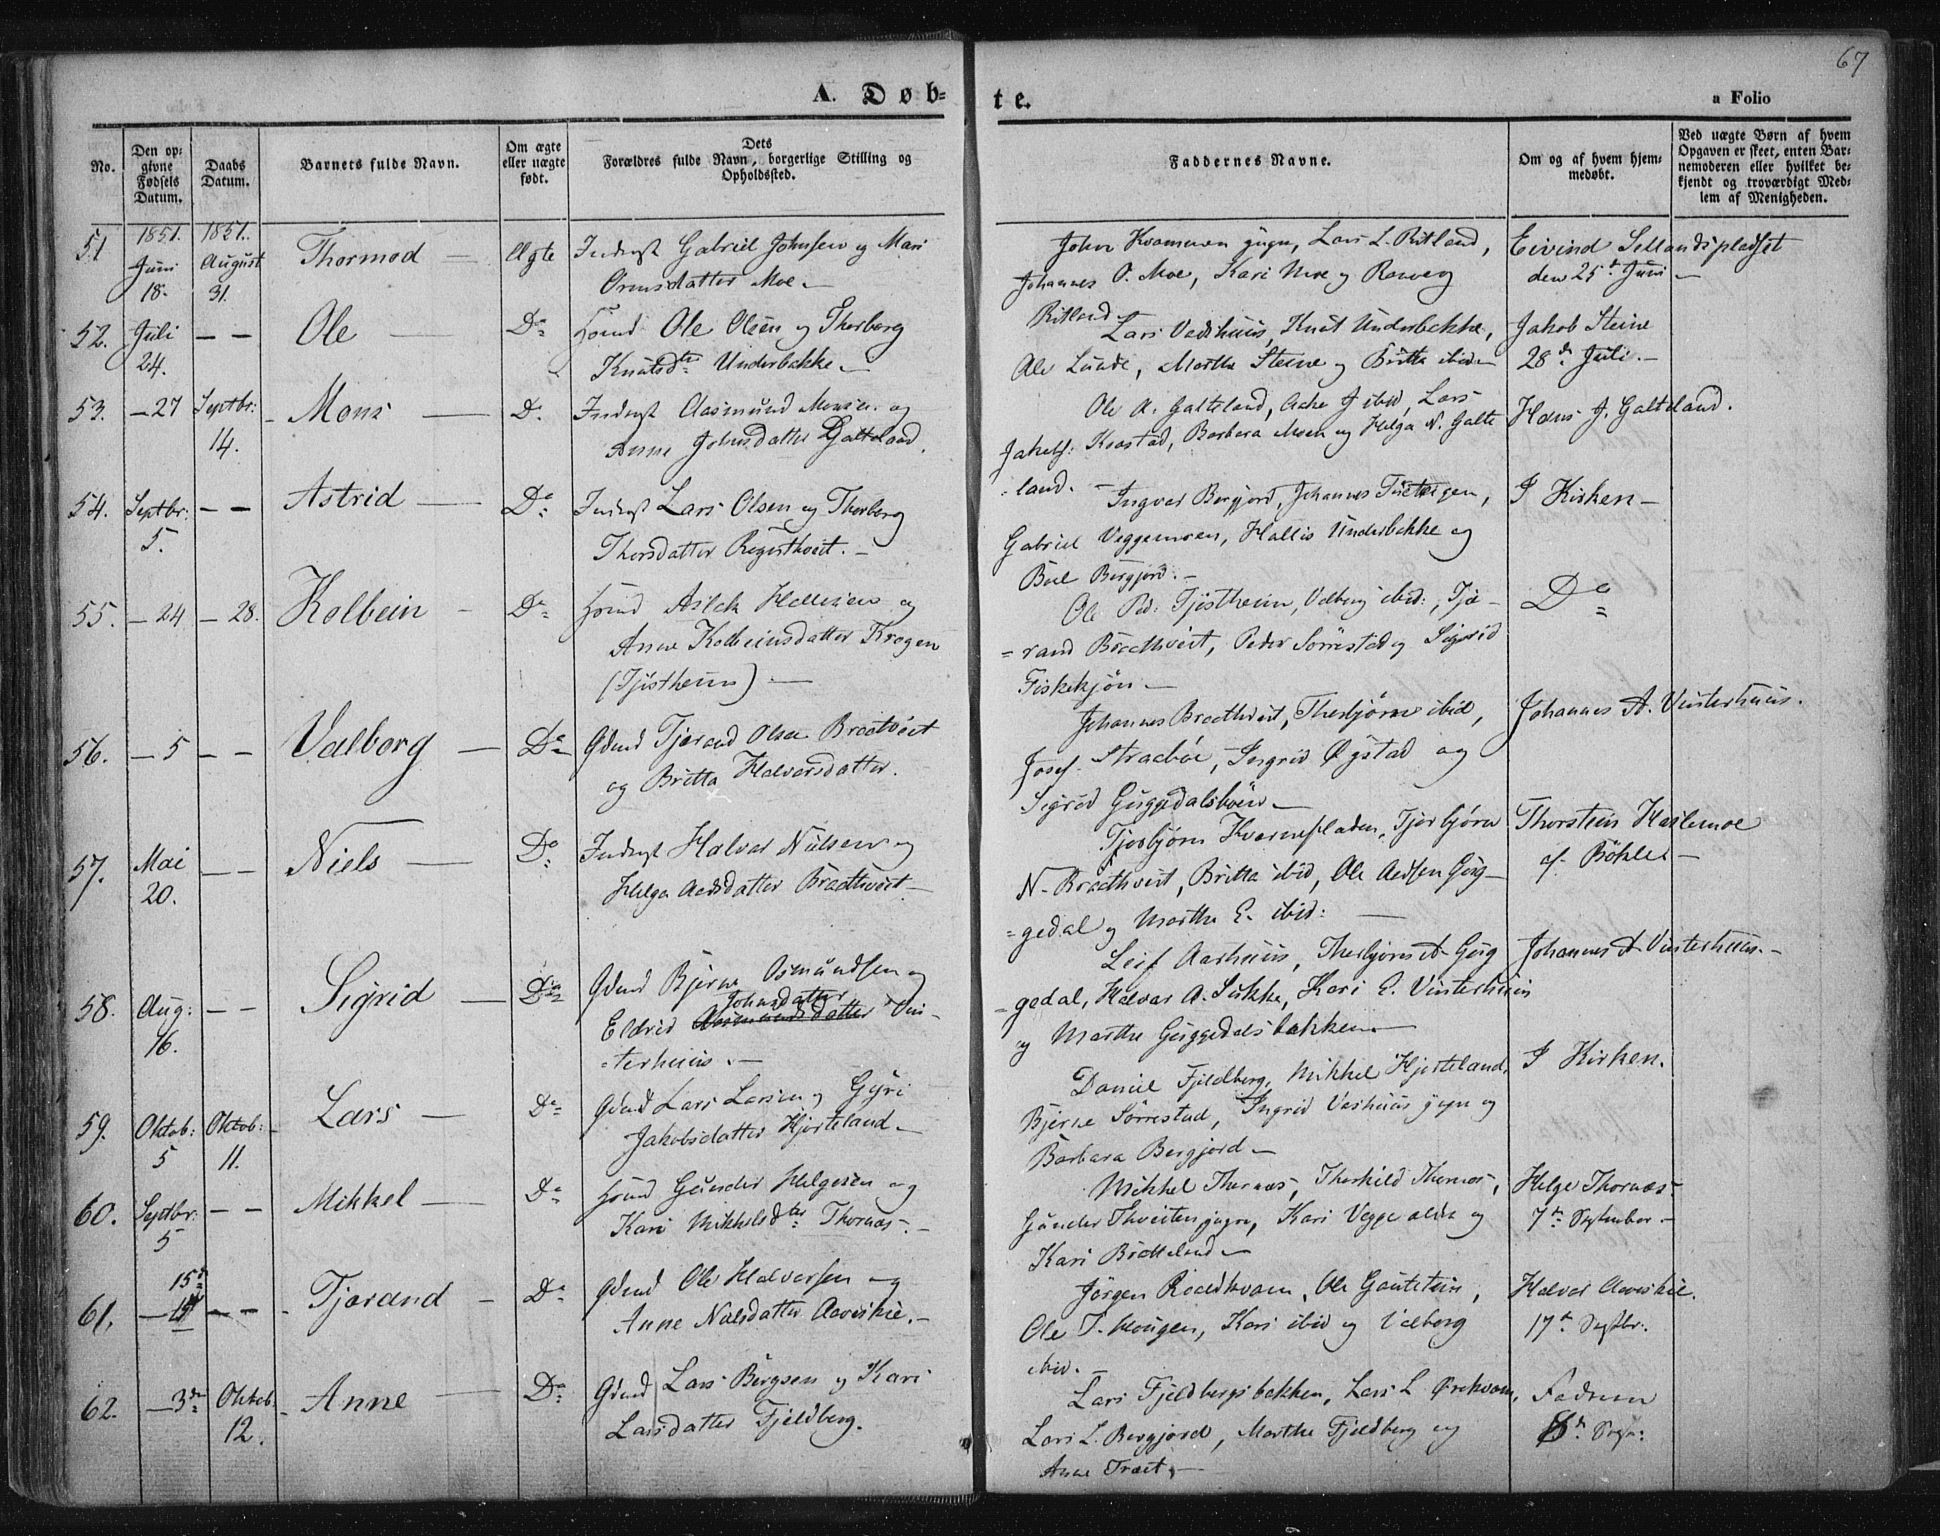 67
A. Døb-
te.
a Folio
No.
Den op-
givne
Fødsels
Datum.
Daabs
Datum.
Barnets fulde Navn.
Om ægte
eller uægte
født.
Dets
Forældres fulde Navn, borgerlige Stilling og
Opholdssted.
Faddernes Navne.
Om og af hvem hjem-
medøbt.
Ved uægte Børn af hvem
Opgaven er skeet, enten Bar-
nemoderen eller hvilket be-
kjendt og troværdigt Med-
lem af Menigheden.
51
1851.
Juni
18.
1851.
August
31.
Thormod
Ægte
Inderst Gabriel Johnsen og Mari
Ormsdatter Moe.
Kvammen yngre, Lars L. Ritland,
Johannes O. Moe, Kari Moe og
Ritland
Eivind Sellandspladset
den 25de Juni
52.
Juli
24.
— —
Ole
Do
Ole Olsen og Thorborg
Knutsdtr Underbakke
Lars Vadshuus, Knut Underbakke,
Ole Lunde, Martha Steine og Britta ibid
Jakob Steine
28de Juli.
53.
— 27
Septbr:
14.
Mons
Do
Inderst Aasmund Monsen og
Anne Johnsdatter Galteland.
Ole A. Galteland, ibid, Lars
Barbara Moen og Helga N. Galte
land.
Hans J. Galteland.
54.
Septbr:
5.
— —
Astrid
Do
Inderst Lars Olsen og Thorborg
Thorsdatter
Ingvar Bergjord, Johannes
Gabriel Veggemoen, Hallis Underbakke og
Bergjord.
I Kirken
55.
— 24
— 28.
Kolbein
Do
Aslak Hellesen og
Anne Kolbeinsdatter Krogen
(Tjøstheim)
Ole Ped: Tjøstheim, Valborg ibid:, Tjø-
rand Braathveit, Peder Sørrestad og Sigrid
Fiskekjøn
Do
56.
— 5
— —
Valborg
Do
Gdmd Tjørand Olsen Braatveit
og Britta Halvorsdatter.
Johannes Braathveit, Thorbjørn ibid,
Josef Straabøe, Ingrid Øystad og
Sigrid
Johannes A. Vinterhuus.
57.
Mai
20.
— —
Niels
Do
Inderst Halvor Nielsen og
Helga Aadsdatter Braathveit
Tjerbjørn Tjerbjørn
N. Braathveit, Britta ibid, Ole Aadsen Gug-
gedal og Martha E. ibid:
Thorstein Hailemoe
af Bøhle
58.
Aug:
16.
— —
Sigrid
Do
Gdmd Bjerne Osmundsen og
Johnsdatter
Eldrid Vin-
terhuus.
Leif Aarhuus, Thorbjørn A. Gug
gedal, Halvor A. Sukke, Kari E. Vinterhuus
og Martha Guggedalsbakken
Johannes A. Vinterhuus.
59.
Oktob:
5
Oktob:
11.
Lars
Do
Gdmd Lars Larsen og Gyri
Jakobsdatter Hjorteland
Daniel Fjeldberg, Mikkel Hjorteland,
Bjerne Sørrestad, Ingrid Vashuus yngr og
Barbara Bergjord
I Kirken.
60.
Septbr:
5
— —
Mikkel
Do
Gunder Helgesen og
Kari Mikkelsdtr Thornæs.
Mikkel Thornæs, Thorkild Thornæs,
Gunder Thveiten yngre, Kari Vegge ældr og
Kari Bratteland
Helge Thornæs
7de September
61.
15de
— —
Tjørand
Do
Gdmd Ole Halvorsen og
Anne Nielsdatter Aaviskie.
Jørgen Roaldkvam, Ole
Ole T. Mougen, Kari ibid og Valborg
ibid.
Halvor Aaviskie.
17de Septbr:
62.
— 3de
Oktob.
12.
Anne
Do
Gdmd Lars Bergsen og Kari
Larsdatter Fjeldberg.
Lars Fjeldbergsbakken, Lars L. Ørekvam,
Lars L. Bergjord, Martha Fjeldberg og
Anne Træet
Faderen
8de